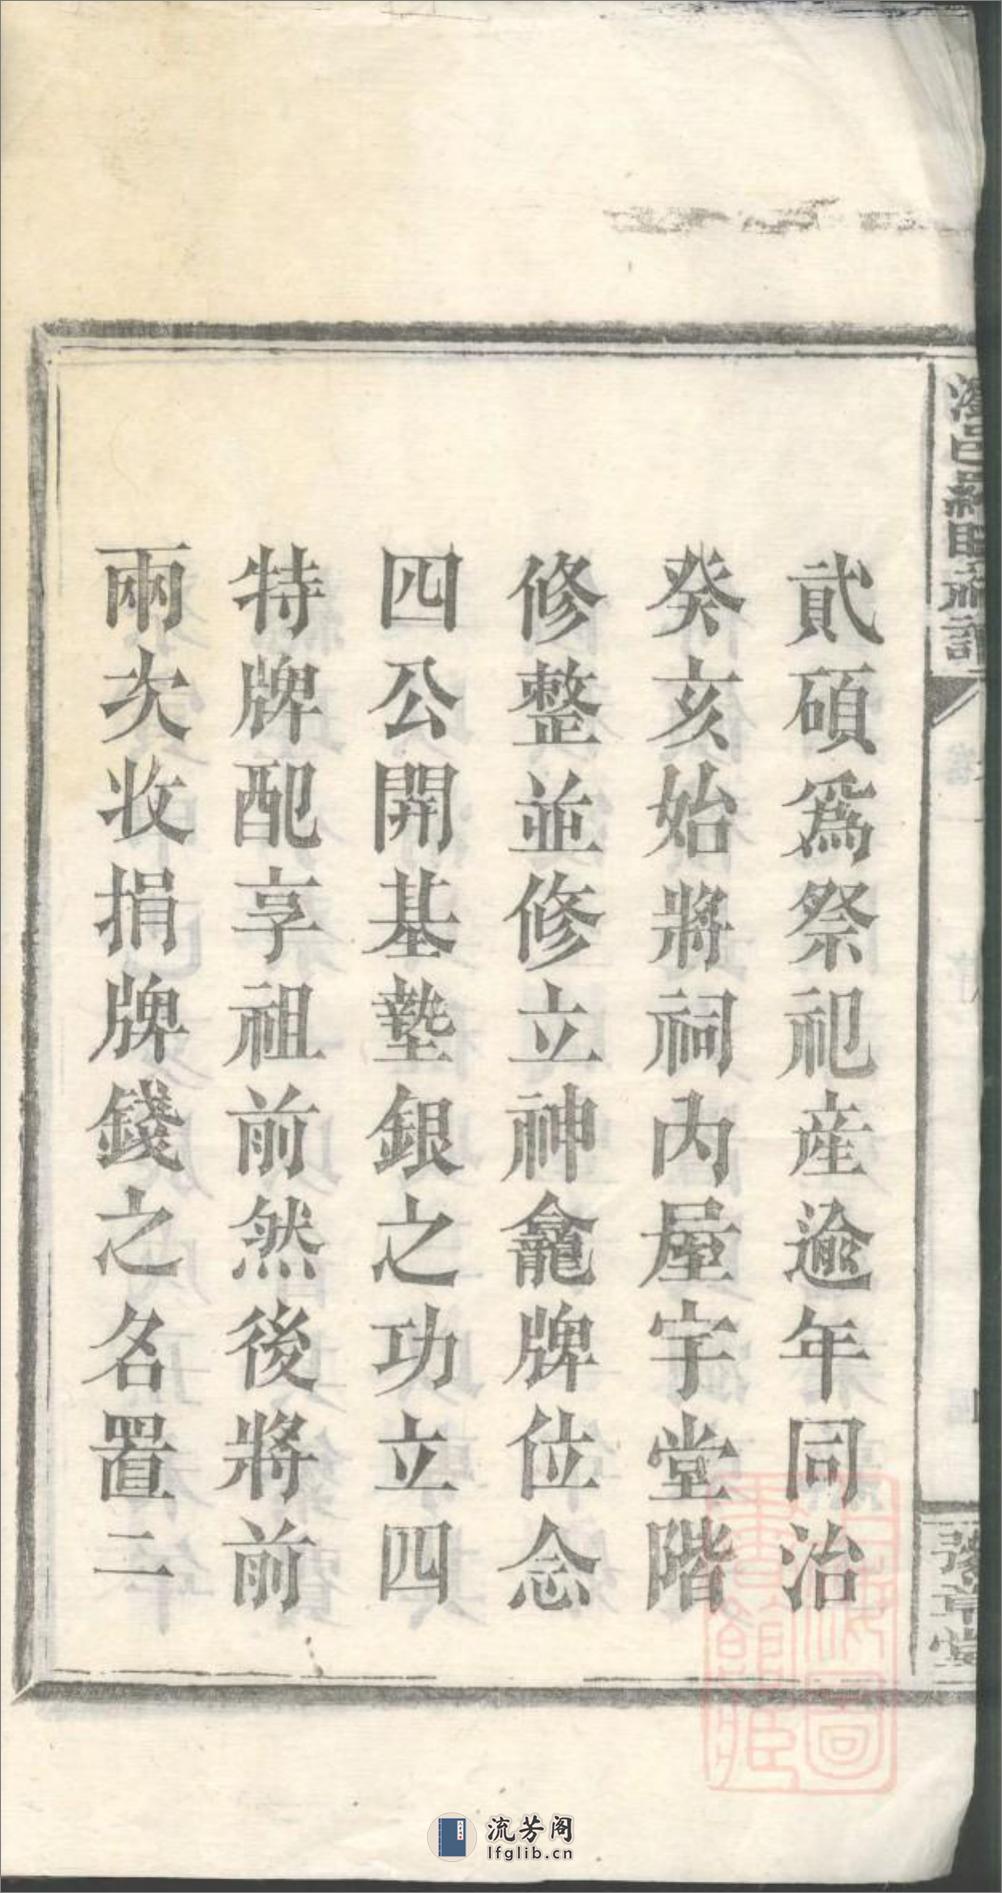 貳碩為祭祀産逾年同治
癸亥始將祠內屋宇堂階
修整並修立神龕牌位念
四公開基墊銀之功立四
特牌配享祖前然後將前
兩次收捐牌錢之名置二
豫章堂
流芳阁
lfglib.cn